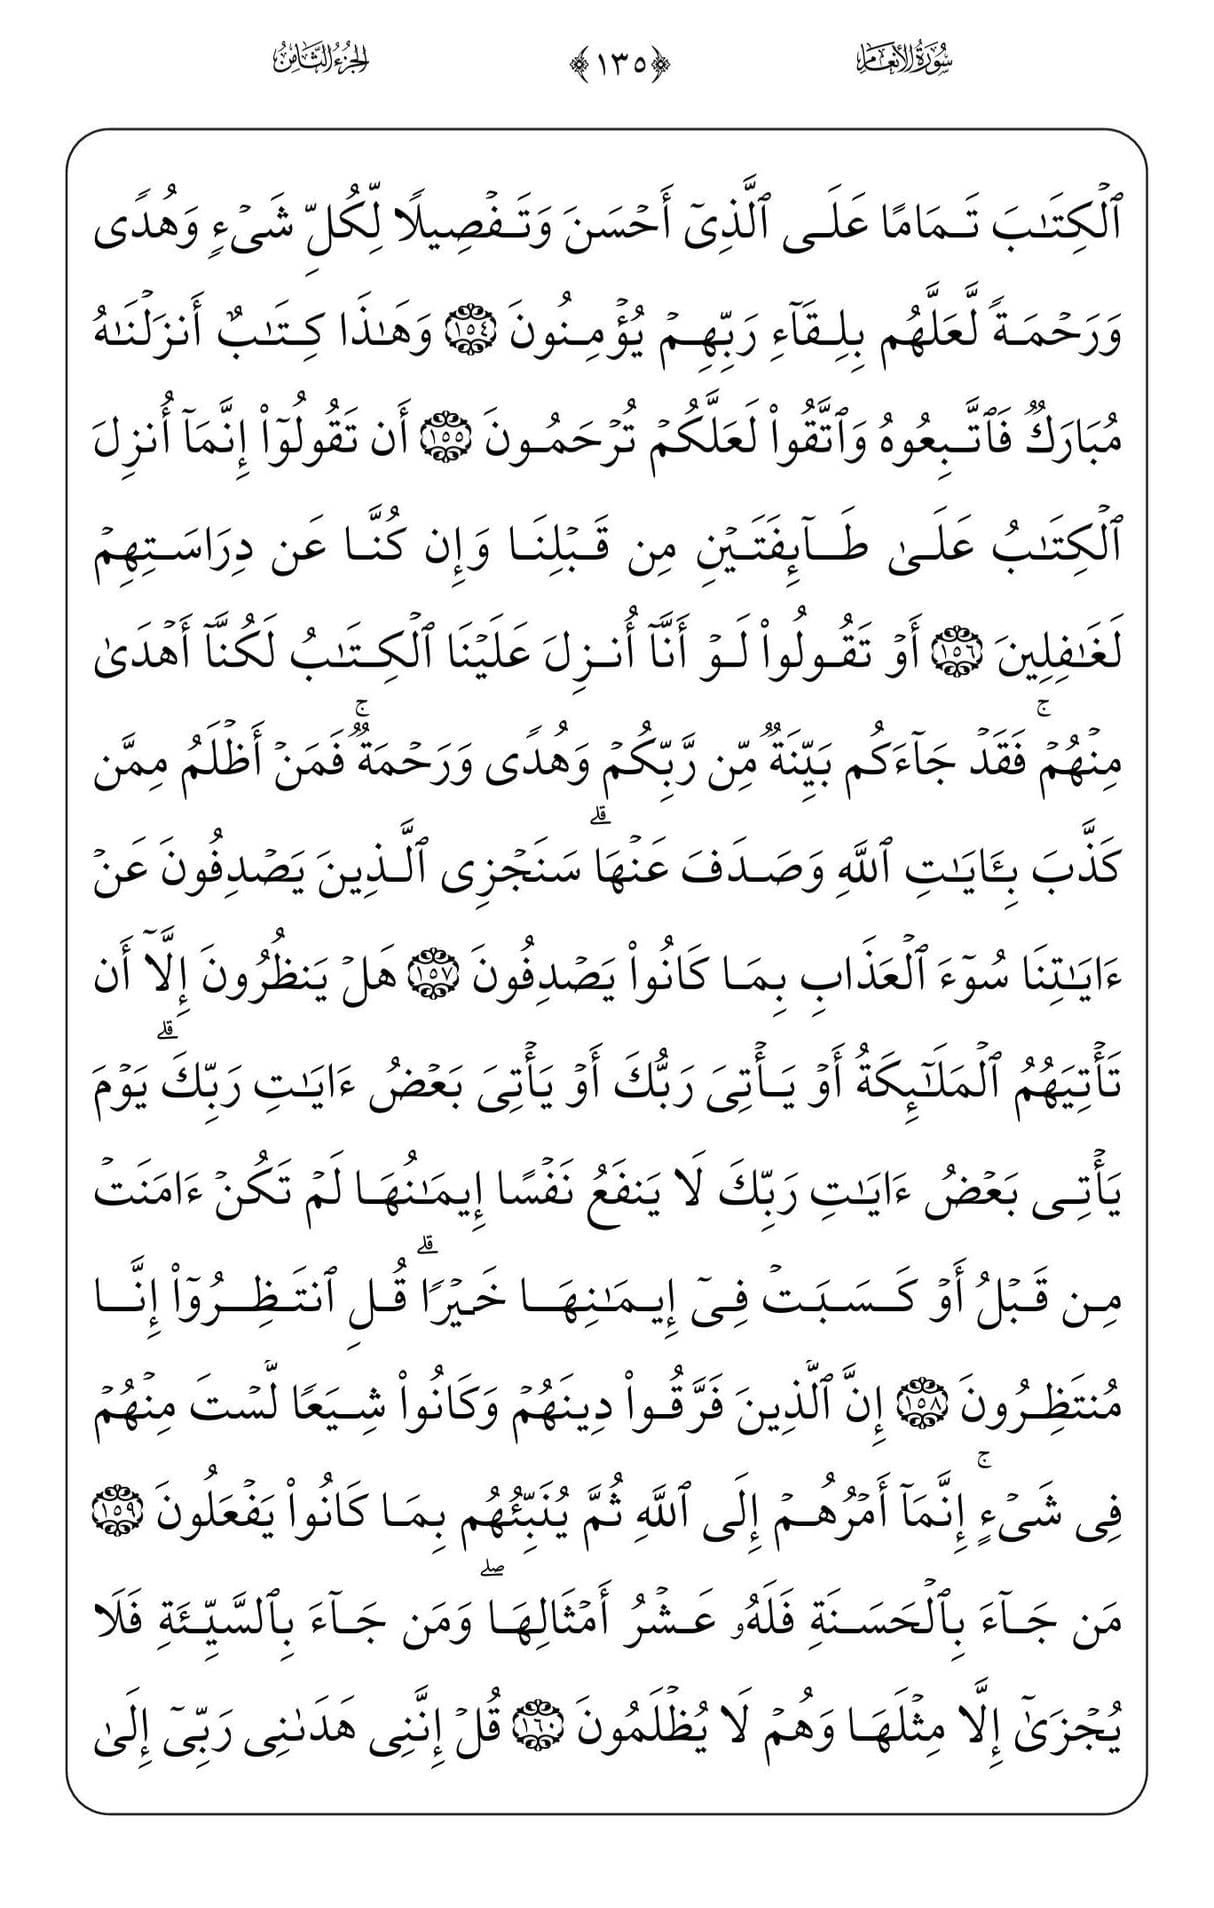 سُورَةُ الأَنْعَامِ ﴿١٣٥﴾ الجُزْءُ الثَّامِنُ
ٱلْكِتَـٰبَ تَمَامًا عَلَى ٱلَّذِىٓ أَحْسَنَ وَتَفْصِيلًا لِّكُلِّ شَىْءٍ وَهُدًى
وَرَحْمَةً لَّعَلَّهُم بِلِقَآءِ رَبِّهِمْ يُؤْمِنُونَ ١٥٤ وَهَـٰذَا كِتَـٰبٌ أَنزَلْنَـٰهُ
مُبَارَكٌ فَٱتَّبِعُوهُ وَٱتَّقُوا۟ لَعَلَّكُمْ تُرْحَمُونَ ١٥٥ أَن تَقُولُوٓا۟ إِنَّمَآ أُنزِلَ
ٱلْكِتَـٰبُ عَلَىٰ طَآئِفَتَيْنِ مِن قَبْلِنَا وَإِن كُنَّا عَن دِرَاسَتِهِمْ
لَغَـٰفِلِينَ ١٥٦ أَوْ تَقُولُوا۟ لَوْ أَنَّآ أُنزِلَ عَلَيْنَا ٱلْكِتَـٰبُ لَكُنَّآ أَهْدَىٰ
مِنْهُمْ ۚ فَقَدْ جَآءَكُم بَيِّنَةٌ مِّن رَّبِّكُمْ وَهُدًى وَرَحْمَةٌ ۚ فَمَنْ أَظْلَمُ مِمَّن
كَذَّبَ بِـَٔايَـٰتِ ٱللَّهِ وَصَدَفَ عَنْهَا ۗ سَنَجْزِى ٱلَّذِينَ يَصْدِفُونَ عَنْ
ءَايَـٰتِنَا سُوٓءَ ٱلْعَذَابِ بِمَا كَانُوا۟ يَصْدِفُونَ ١٥٧ هَلْ يَنظُرُونَ إِلَّآ أَن
تَأْتِيَهُمُ ٱلْمَلَـٰٓئِكَةُ أَوْ يَأْتِىَ رَبُّكَ أَوْ يَأْتِىَ بَعْضُ ءَايَـٰتِ رَبِّكَ ۗ يَوْمَ
يَأْتِى بَعْضُ ءَايَـٰتِ رَبِّكَ لَا يَنفَعُ نَفْسًا إِيمَـٰنُهَا لَمْ تَكُنْ ءَامَنَتْ
مِن قَبْلُ أَوْ كَسَبَتْ فِىٓ إِيمَـٰنِهَا خَيْرًا ۗ قُلِ ٱنتَظِرُوٓا۟ إِنَّا
مُنتَظِرُونَ ١٥٨ إِنَّ ٱلَّذِينَ فَرَّقُوا۟ دِينَهُمْ وَكَانُوا۟ شِيَعًا لَّسْتَ مِنْهُمْ
فِى شَىْءٍ ۚ إِنَّمَآ أَمْرُهُمْ إِلَى ٱللَّهِ ثُمَّ يُنَبِّئُهُم بِمَا كَانُوا۟ يَفْعَلُونَ ١٥٩
مَن جَآءَ بِٱلْحَسَنَةِ فَلَهُۥ عَشْرُ أَمْثَالِهَا ۖ وَمَن جَآءَ بِٱلسَّيِّئَةِ فَلَا
يُجْزَىٰٓ إِلَّا مِثْلَهَا وَهُمْ لَا يُظْلَمُونَ ١٦٠ قُلْ إِنَّنِى هَدَىٰنِى رَبِّىٓ إِلَىٰ